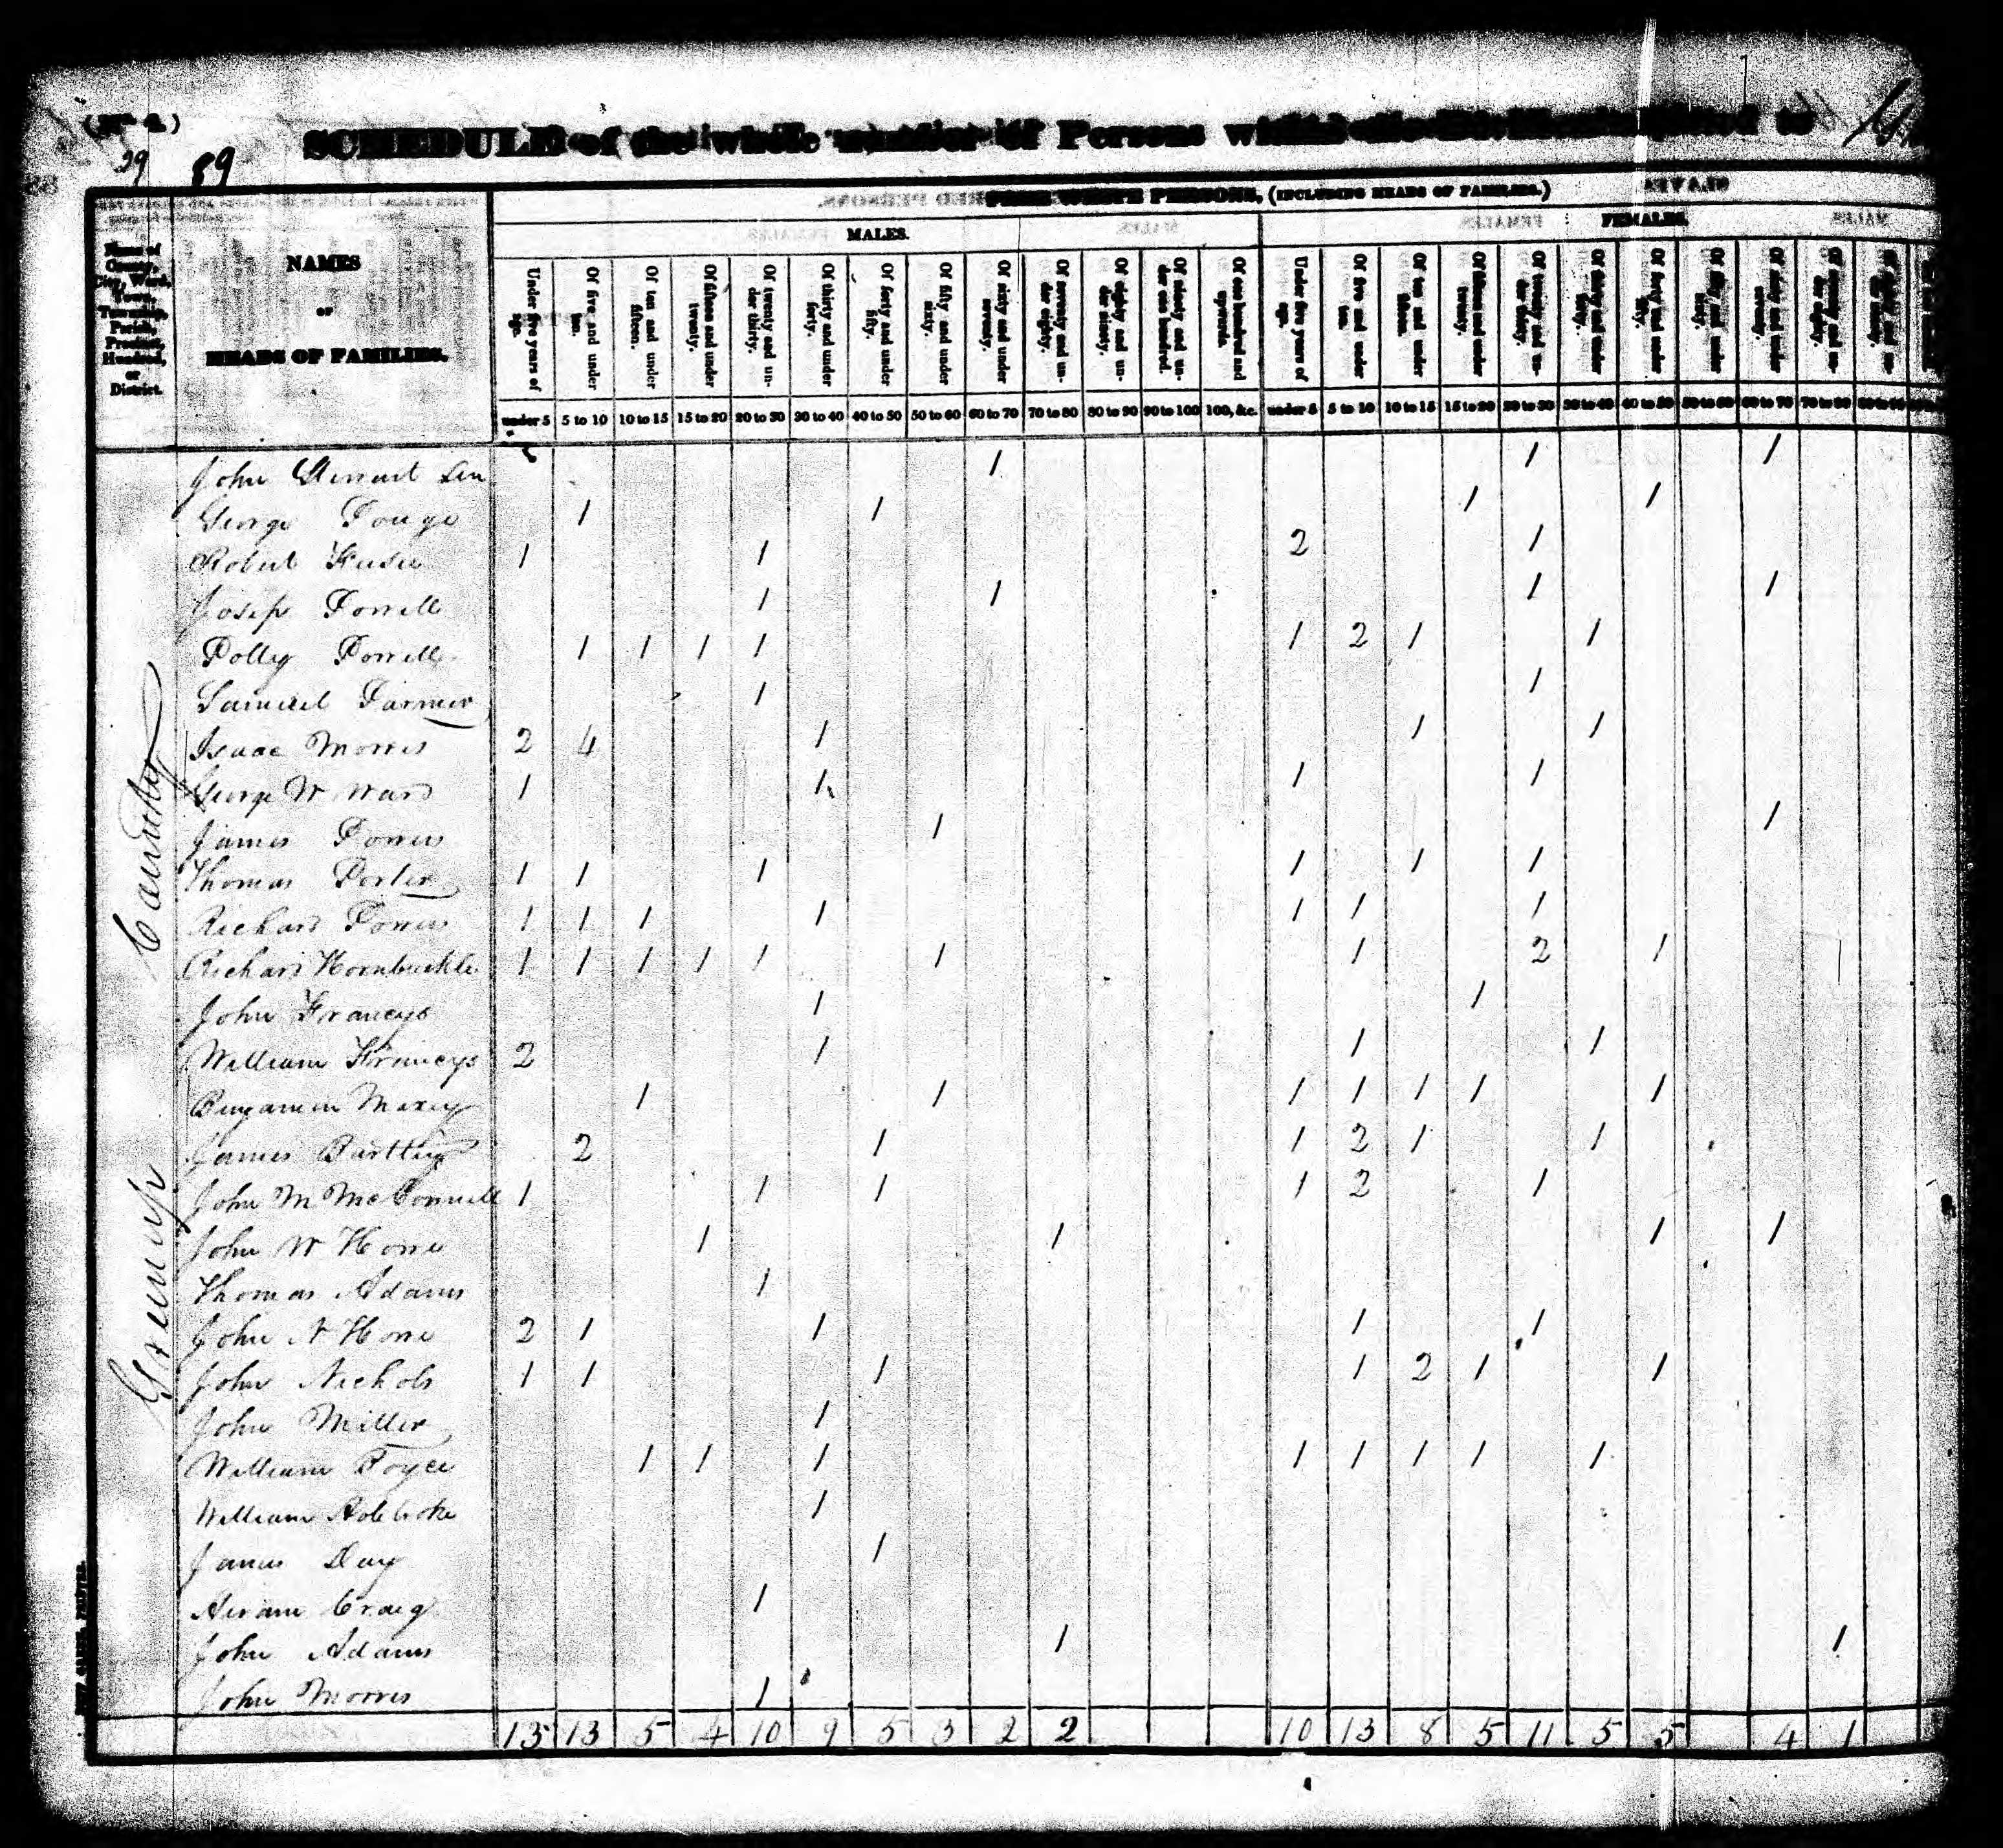 29 89
SCHEDULE of the whole number of Persons within
FREE WHITE PERSONS, (INCLUDING HEADS OF FAMILIES.)
MALES. FEMALES.
Name of County, City, Ward, Town, Township, Parish, Precinct, Hundred, or District.
NAMES
OF
HEADS OF FAMILIES.
Under five years of age. Of five and under ten. Of ten and under fifteen. Of fifteen and under twenty. Of twenty and under thirty. Of thirty and under forty. Of forty and under fifty. Of fifty and under sixty. Of sixty and under seventy. Of seventy and under eighty. Of eighty and under ninety. Of ninety and under one hundred. Of one hundred and upwards. Under five years of age. Of five and under ten. Of ten and under fifteen. Of fifteen and under twenty. Of twenty and under thirty. Of thirty and under forty. Of forty and under fifty. Of fifty and under sixty. Of sixty and under seventy. Of seventy and under eighty.
under 5 5 to 10 10 to 15 15 to 20 20 to 30 30 to 40 40 to 50 50 to 60 60 to 70 70 to 80 80 to 90 90 to 100 100, &c. under 5 5 to 10 10 to 15 15 to 20 20 to 30 30 to 40 40 to 50 50 to 60 60 to 70 70 to 80
Greenup County
John 1 1 1
George 1 1 1 1
Robert 1 1 2 1
Powell 1 1 1 1
Polly Powell 1 1 1 1 1 2 1 1
Samuel 1 1
Isaac Morris 2 4 1 1 1
George W Ward 1 1 1 1
James Powers 1 1
Thomas Porter 1 1 1 1 1 1
Richard Powers 1 1 1 1 1 1 1
Richard Hornbuckle 1 1 1 1 1 1 1 2 1
John Francys 1 1
William Francys 2 1 1 1
Benjamin Maxey 1 1 1 1 1 1 1
James Bartley 2 1 1 2 1 1
John M McConnell 1 1 1 1 2 1
John W Howe 1 1 1 1
Thomas Adams 1
John N Howe 2 1 1 1 1
John Nichols 1 1 1 1 2 1 1
John Miller 1
William 1 1 1 1 1 1 1 1
William 1
James Day 1
Hiram Craig 1
John Adams 1 1
John Morris 1
13 13 5 4 10 9 5 3 2 2 10 13 8 5 11 5 5 4 1